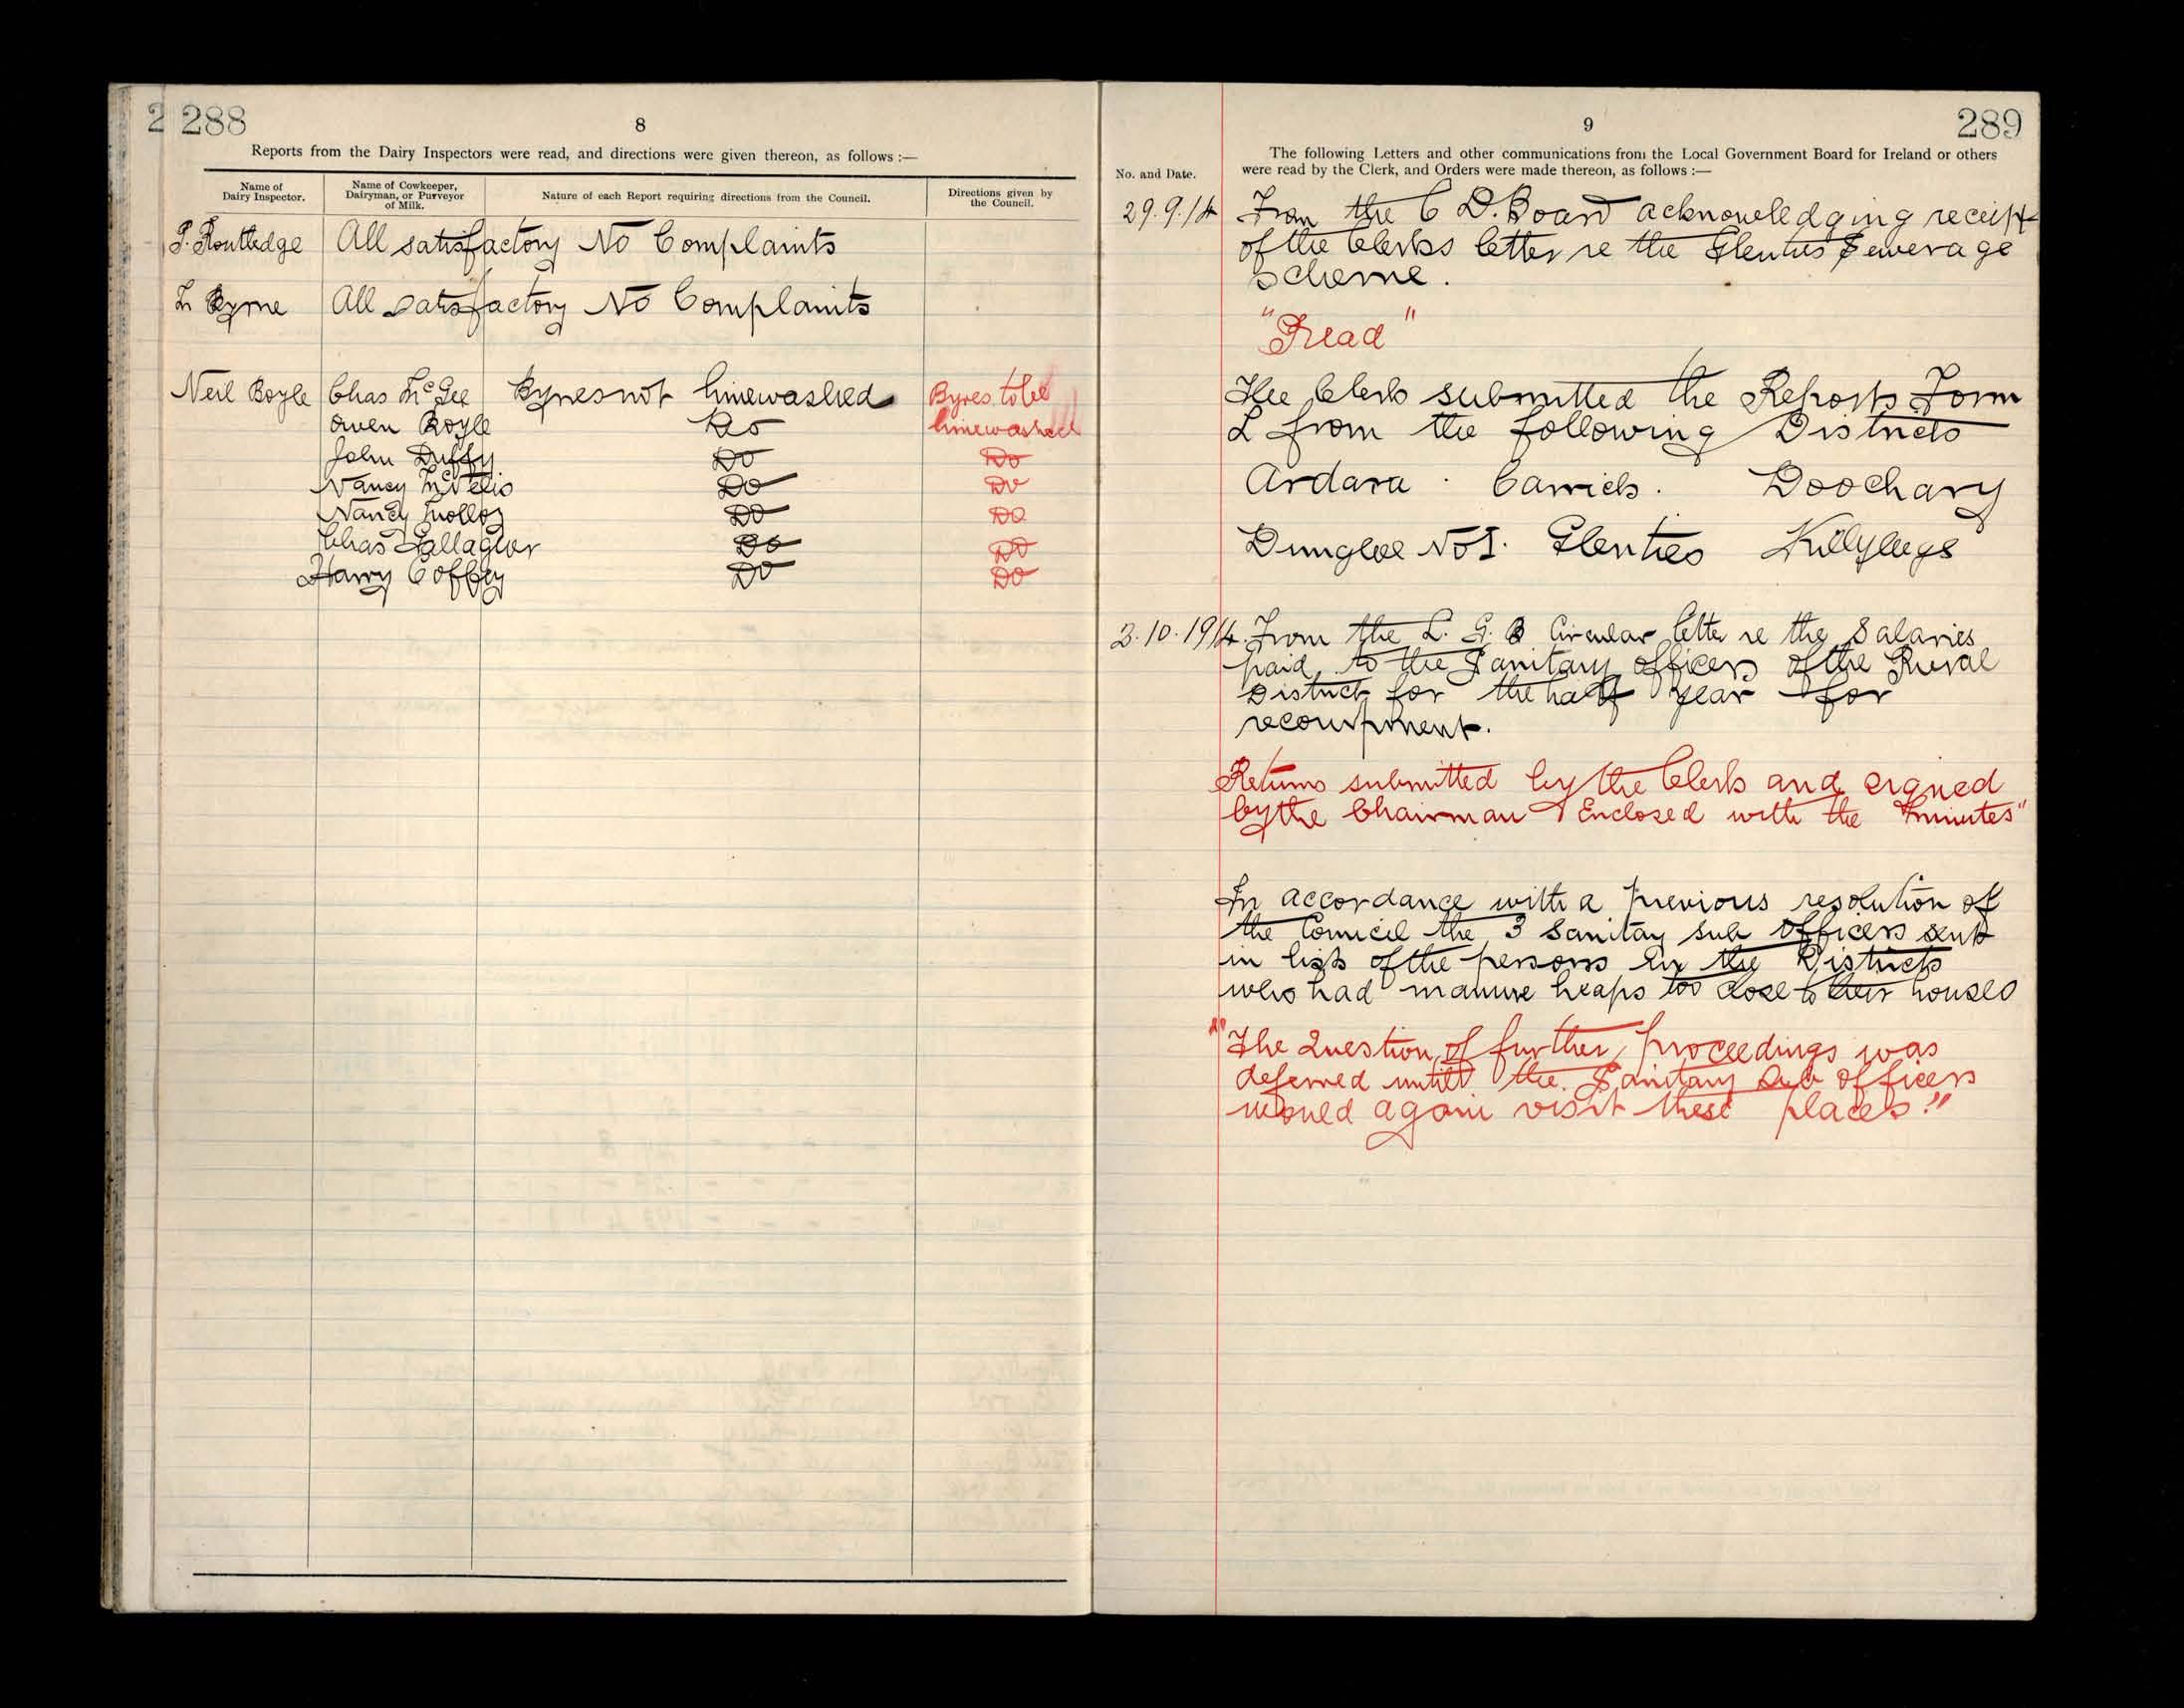 2 288
8
Reports from the Dairy Inspectors were read, and directions were given thereon, as follows :—
Name of Dairy Inspector.
Name of Cowkeeper, Dairyman, or Purveyor of Milk.
Nature of each Report requiring directions from the Council.
Directions given by the Council.
P. Routledge All satisfactory No Complaints
Byrne All satisfactory No Complaints
Neil Boyle Chas McGee Byres not limewashed Byres to be
Owen Boyle Do limewashed
John Duffy Do Do
Nancy McNelis Do Do
Nancy Molloy Do Do
Chas Gallagher Do Do
Harry Coffey Do Do
9
289
The following Letters and other communications from the Local Government Board for Ireland or others
No. and Date. were read by the Clerk, and Orders were made thereon, as follows :—
29.9.14 From the C D. Board acknowledging receipt
of the Clerks letter re the Glenties Sewerage
Scheme.
"Read"
The Clerk submitted the Reports Form
L from the following Districts
Ardara . Carrick . Doochary
Dungloe No I. Glenties Killybegs
3.10.1914. From the L. G. B Circular letter re the Salaries
paid to the Sanitary officers of the Rural
District for the half year for
recoupment.
Returns submitted by the Clerk and signed
by the Chairman & Enclosed with the Minutes"
In accordance with a previous resolution of
the Council the 3 Sanitay sub officers sent
in lists of the persons in the Districts
who had manure heaps too close to their houses
"The Question of further proceedings was
deferred untill the Sanitary Sub officers
would again visit these places."